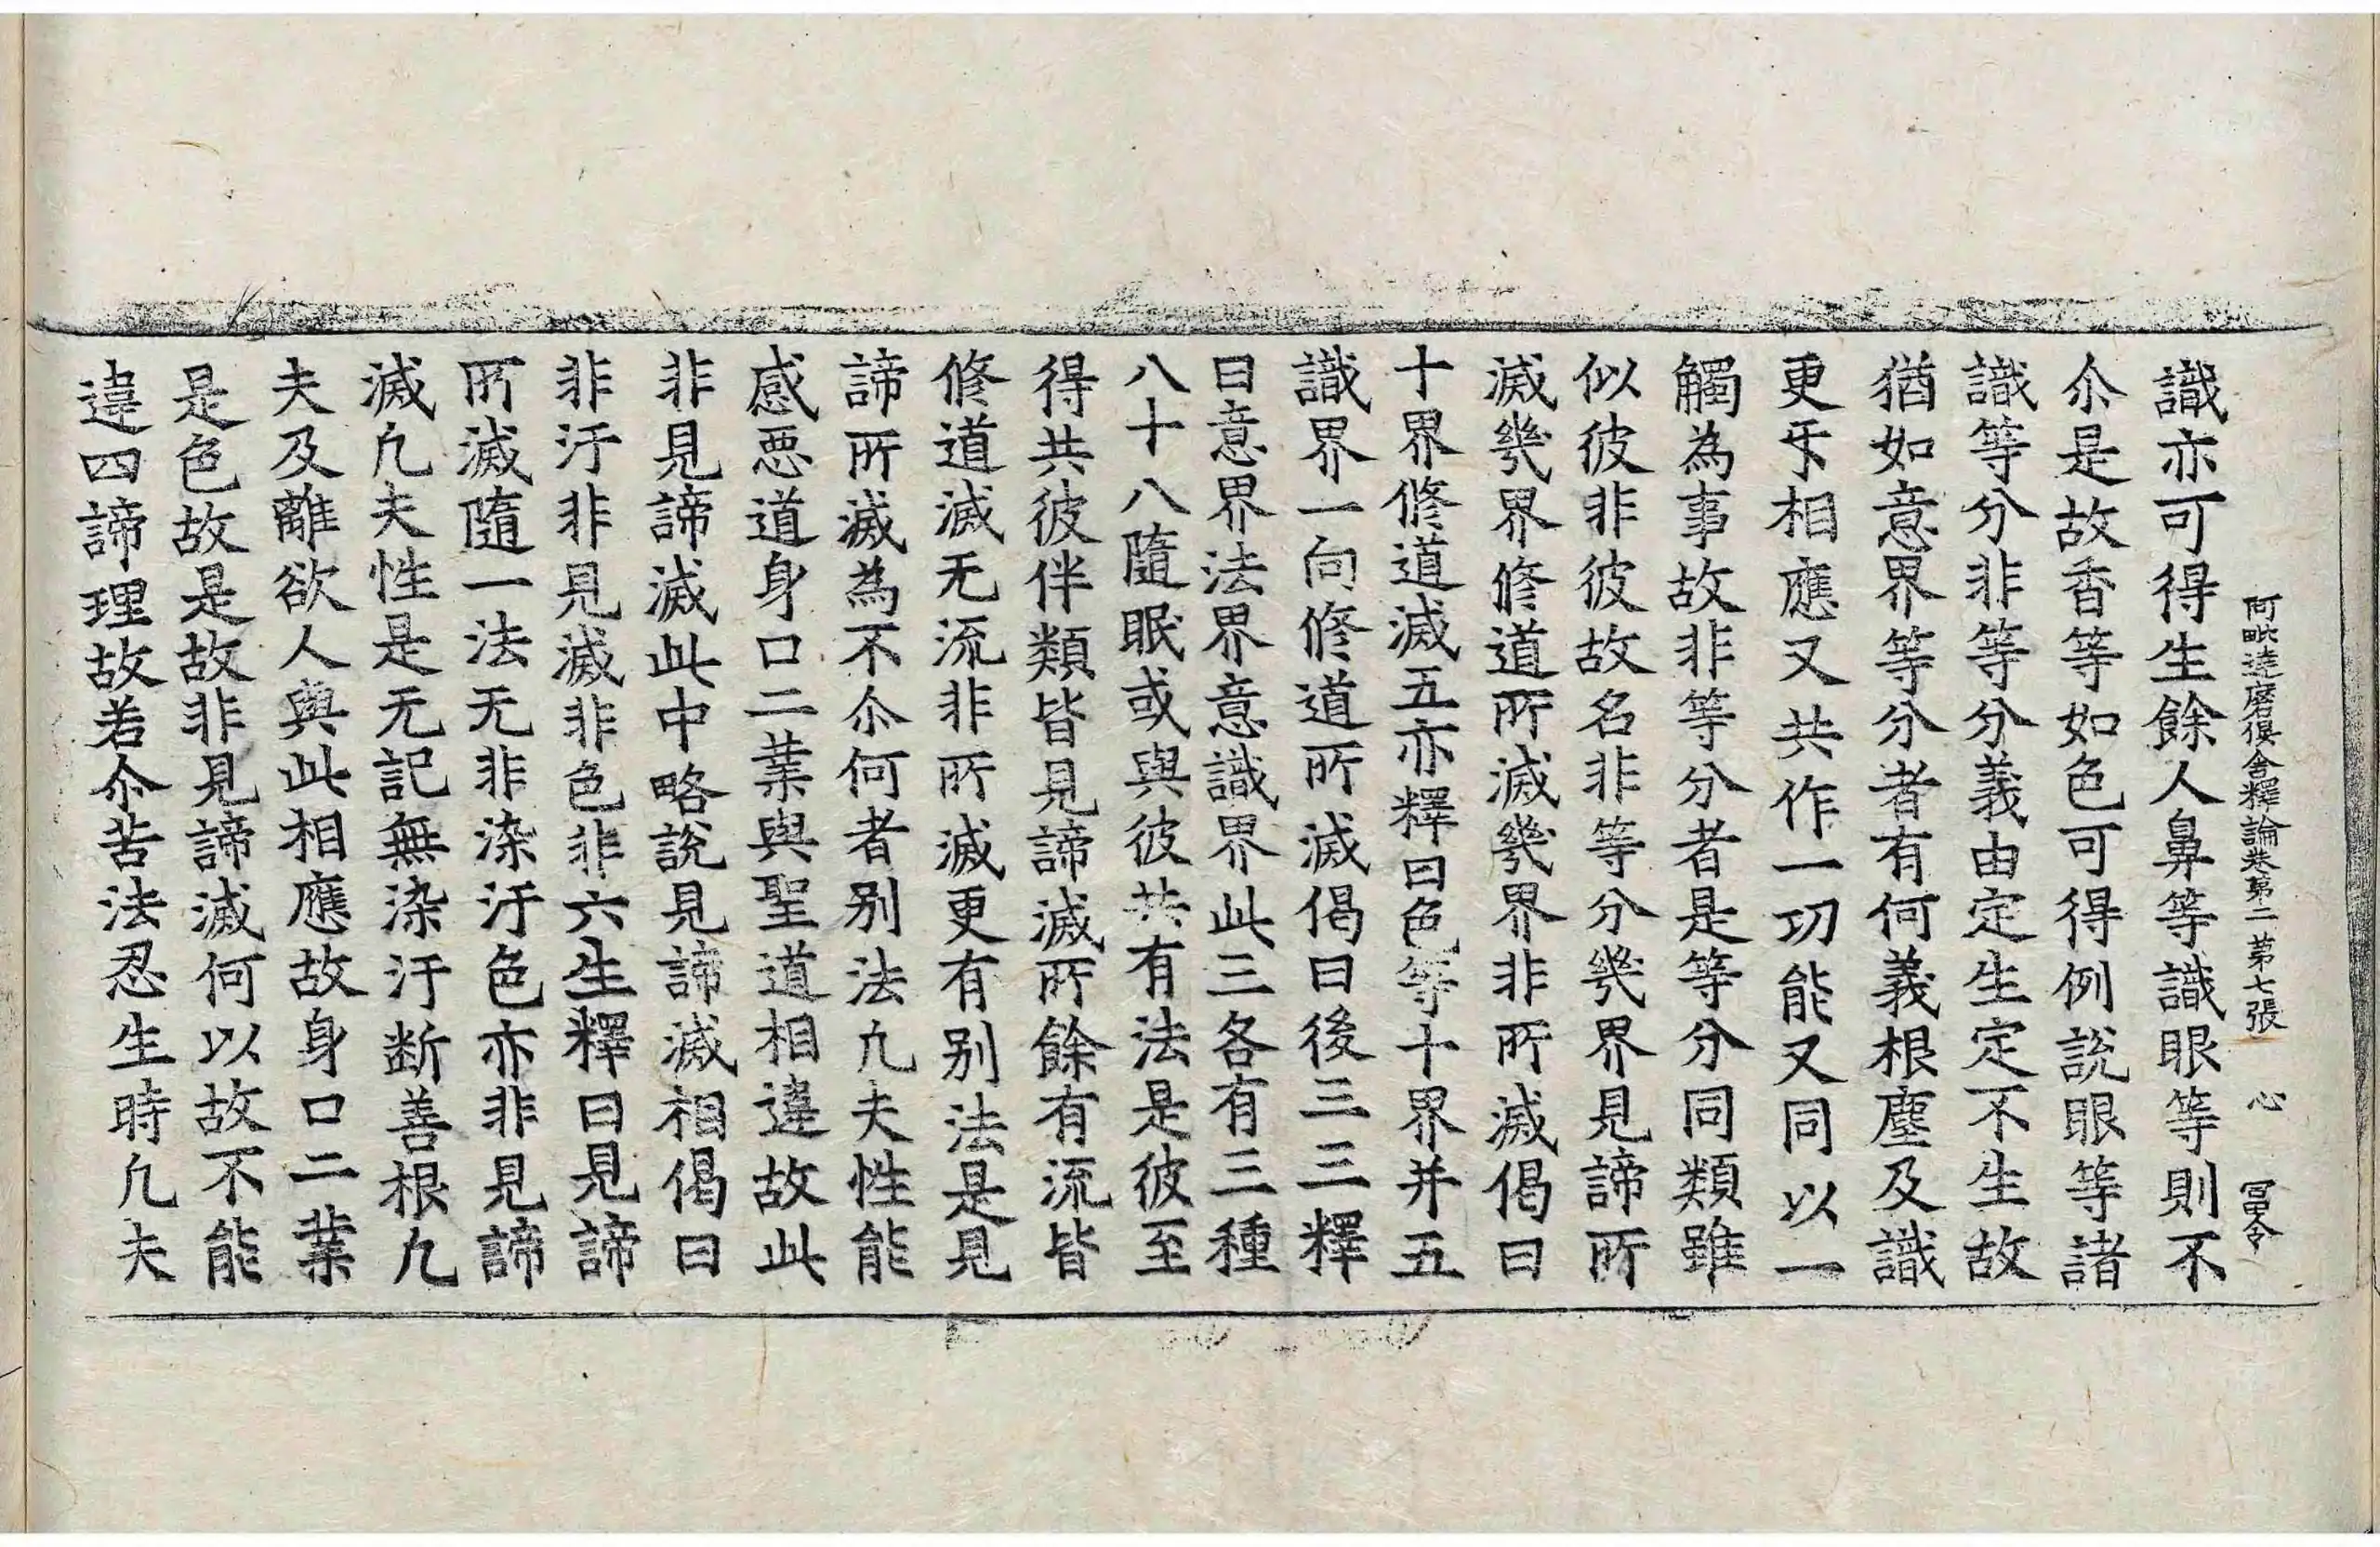 阿毗達磨俱舍釋論卷第二 第七張 心 冨令
識亦可得生餘人鼻等識眼等則不
尒是故香等如色可得例說眼等諸
識等分非等分義由定生定不生故
猶如意界等分者有何義根塵及識
更㸦相應又共作一功能又同以一
觸為事故非等分者是等分同類雖
似彼非彼故名非等分幾界見諦所
滅幾界修道所滅幾界非所滅偈曰
十界修道滅五亦釋曰色等十界并五
識界一向修道所滅偈曰後三三釋
曰意界法界意識界此三各有三種
八十八隨眠或與彼共有法是彼至
得共彼伴類皆見諦滅所餘有流皆
修道滅无流非所滅更有別法是見
諦所滅為不尒何者別法凢夫性能
感惡道身口二業與聖道相違故此
非見諦滅此中略說見諦滅相偈曰
非汙非見滅非色非六生釋曰見諦
所滅隨一法无非染汙色亦非見諦
滅凢夫性是无記無染汙断善根凢
夫及離欲人與此相應故身口二業
是色故是故非見諦滅何以故不能
違四諦理故若尒苦法忍生時凢夫